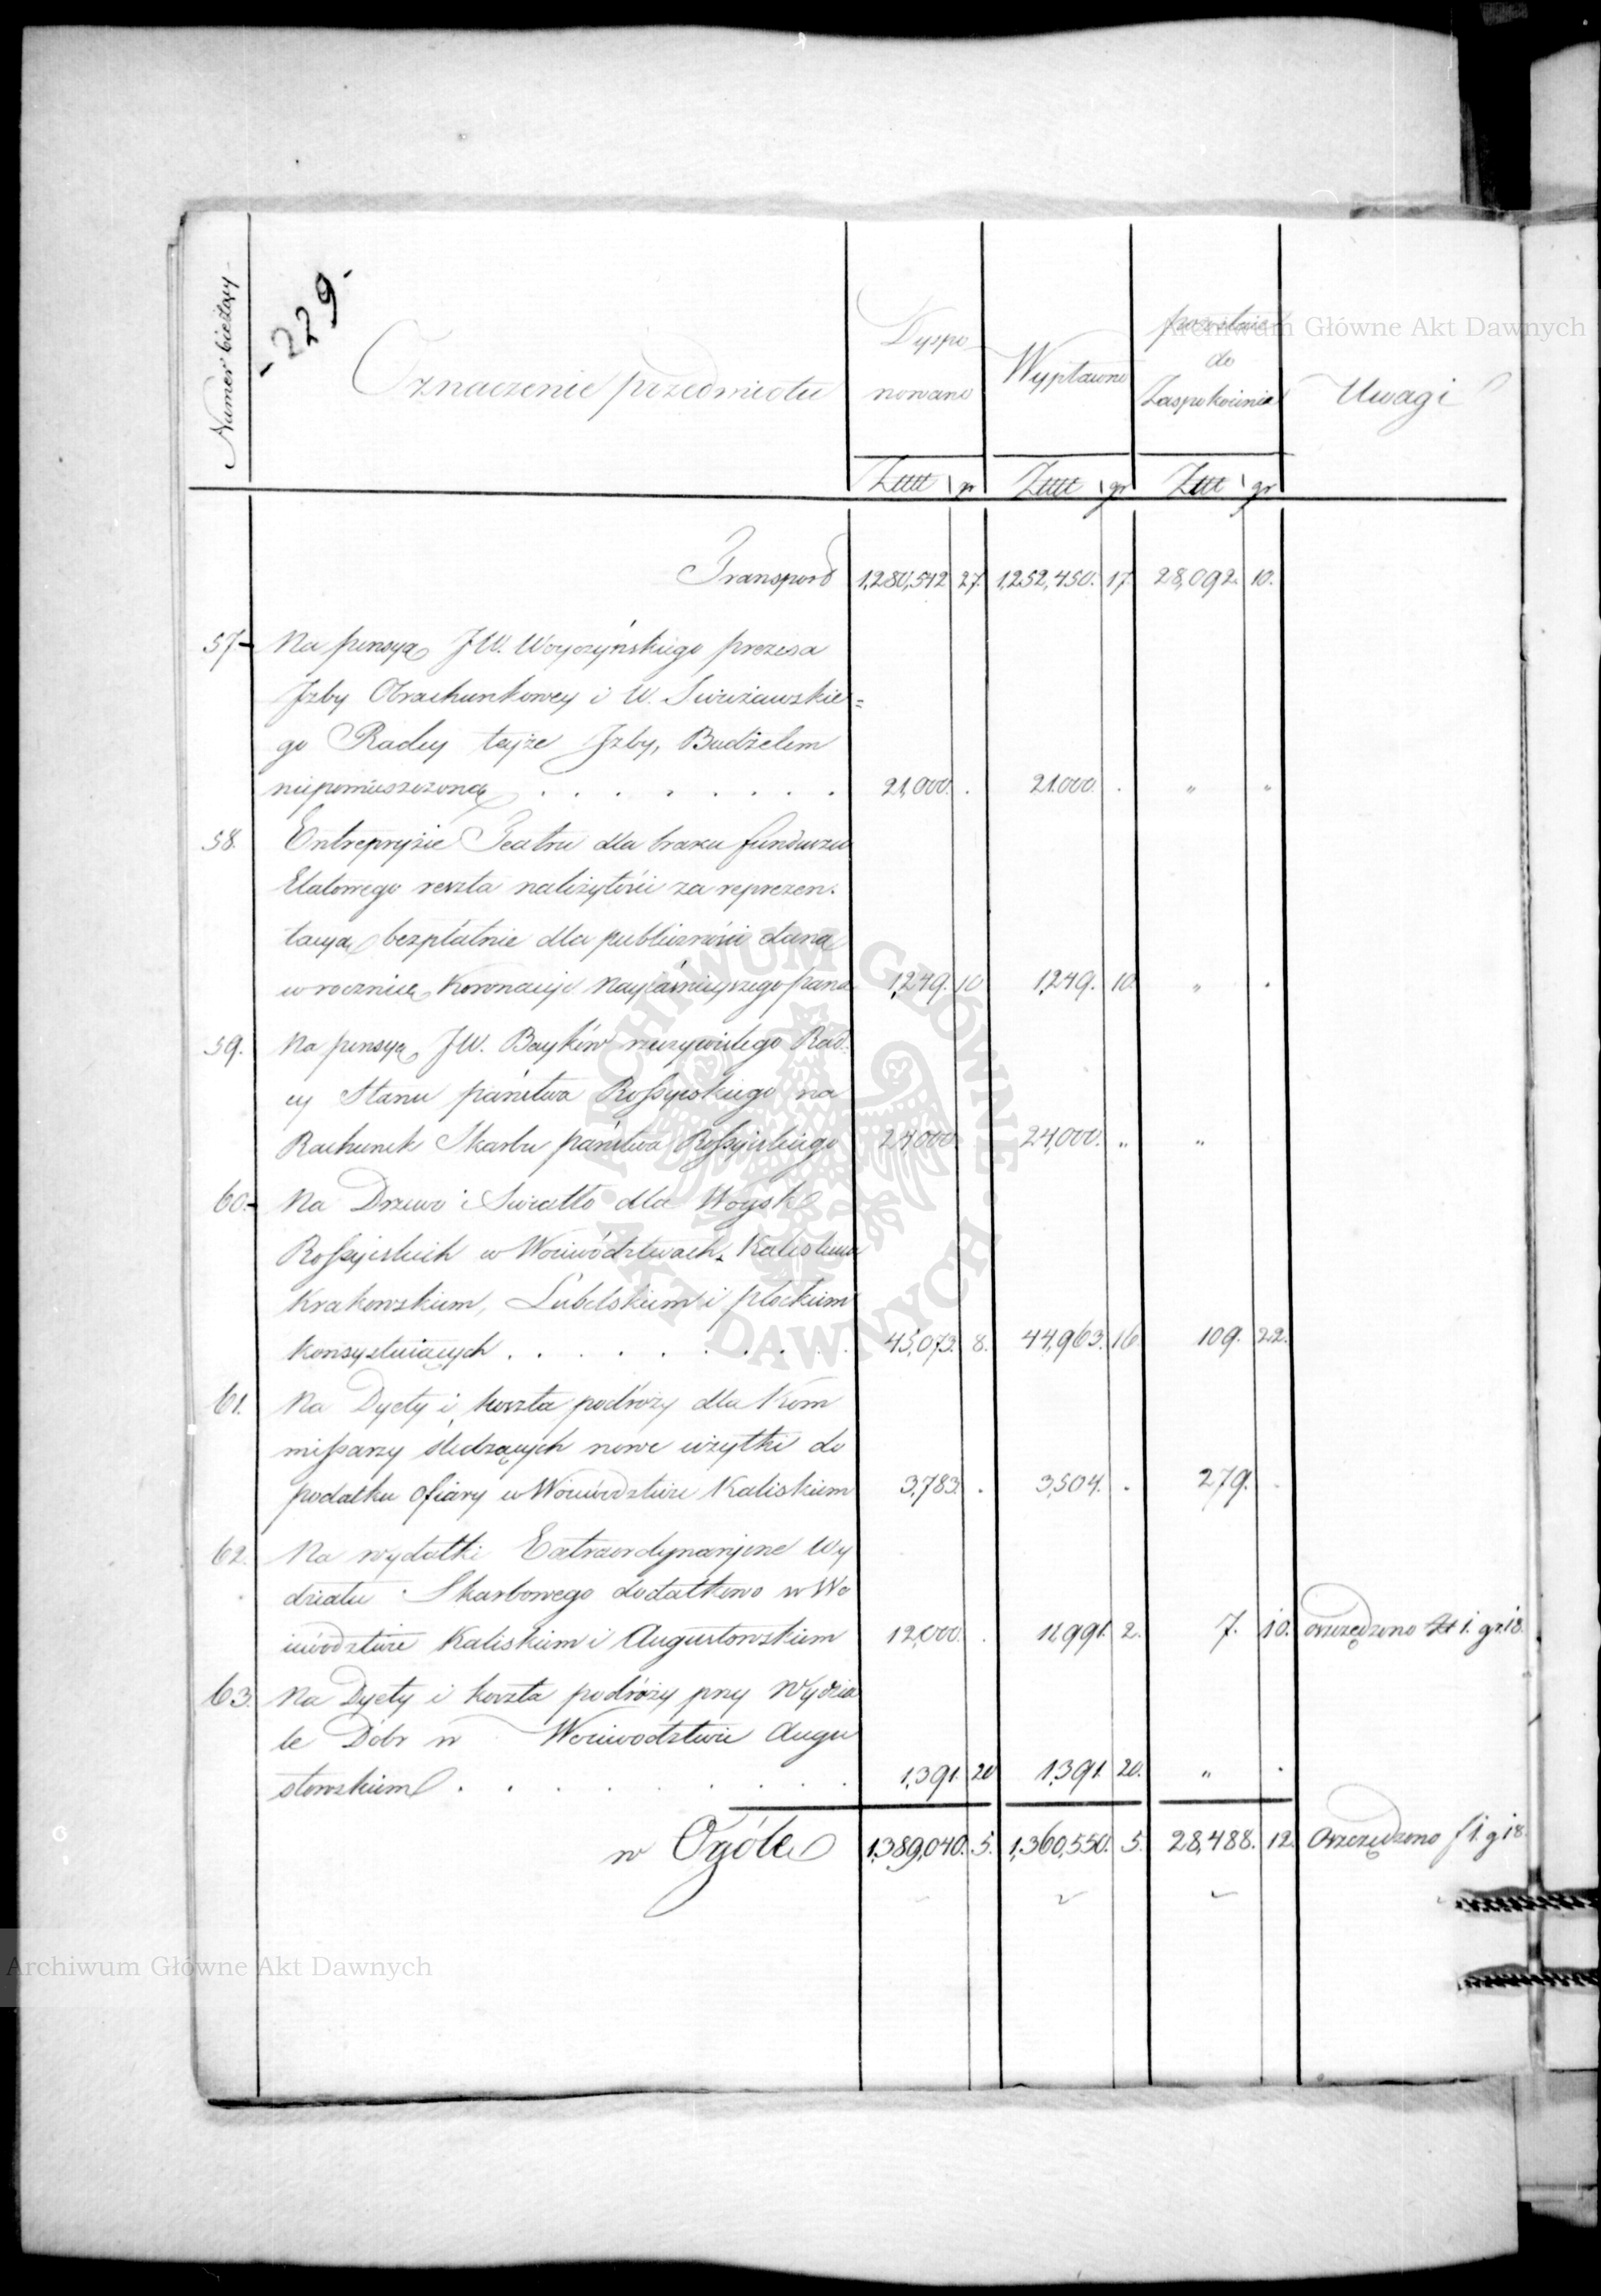 Archiwum Główne Akt Dawnych
- 229. -
Numer bieżący
Oznaczenie przedmiotu
Dyspo
nowano
Wypłacono
pozostaie
do
Zaspokoienia
Uwagi
Złłłł gr Złłłł gr Złłł gr
Transport 1,280,542 27. 1,252,450. 17. 28,092. 10.
57 Na pensyą JW. Woyczyńskiego prezesa
Jzby Obrachunkowey i W. Swieżawskie=
go Radcy teyże Jzby, Budżetem
niepomieszczoną . . . . . . . . 21,000. . 21000. . " "
58. Entrepryzie Teatru dla braku funduszu
Etatowego reszta należytości za reprezen-
tacyą bezpłatnie dla publiczności daną
w rocznicę Koronacyi Nayiaśnieyszego pana 1,249. 10 1,249. 10. " .
59. Na pensyą JW. Baykow rzeczywistego Rad-
cy Stanu państwa Rossyiskiego na
Rachunek Skarbu państwa Rossyiskiego 24,000. 24,000. " "
60. Na Drzewo i Swiatło dla Woysk
Rossyiskich w Woiewództwach, Kaliskiem
Krakowskiem, Lubelskiem i płockiem
konsystuiących . . . . . . . . 45,073. 8. 44,963. 16. 109. 22.
61. Na Dyety i koszta podróży dla Kom
missarzy śledzących nowe użytki do
podatku ofiary w Woiewództwie Kaliskiem 3,783. . 3,504. . 279. .
62. Na wydatki Extraordynaryine Wy
działu Skarbowego dodatkowo w Wo
iewództwie Kaliskiem i Augustowskiem 12,000. . 11991. 2. 7. 10. oszczędzono Zł 1. gr. 18.
63. Na Dyety i koszta podróży przy Wydzia
le Dóbr w Woiewodztwie Augu
stowskiem . . . . . . . . 1,391. 20 1,391. 20. " .
w Ogóle 1,389,040. 5. 1,360,550. 5. 28,488. 12. Oszczędzono f 1. g 18.
Archiwum Główne Akt Dawnych
ARCHIWUM GŁÓWNE · AKT DAWNYCH ·